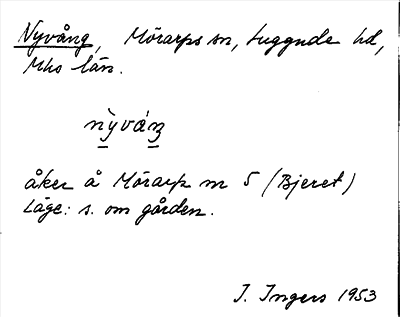 Nyvång, Mörarps sn, Luggude hd,
Mhs län.
nỳváŋ
åker å Mörarp nr 5 (Bjeret)
Läge: s. om gården.
I. Ingers 1953